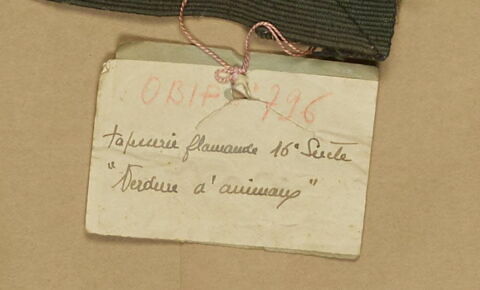 OBIF 796
tapisserie flamande 16e Siècle
"Verdure d'animaux"